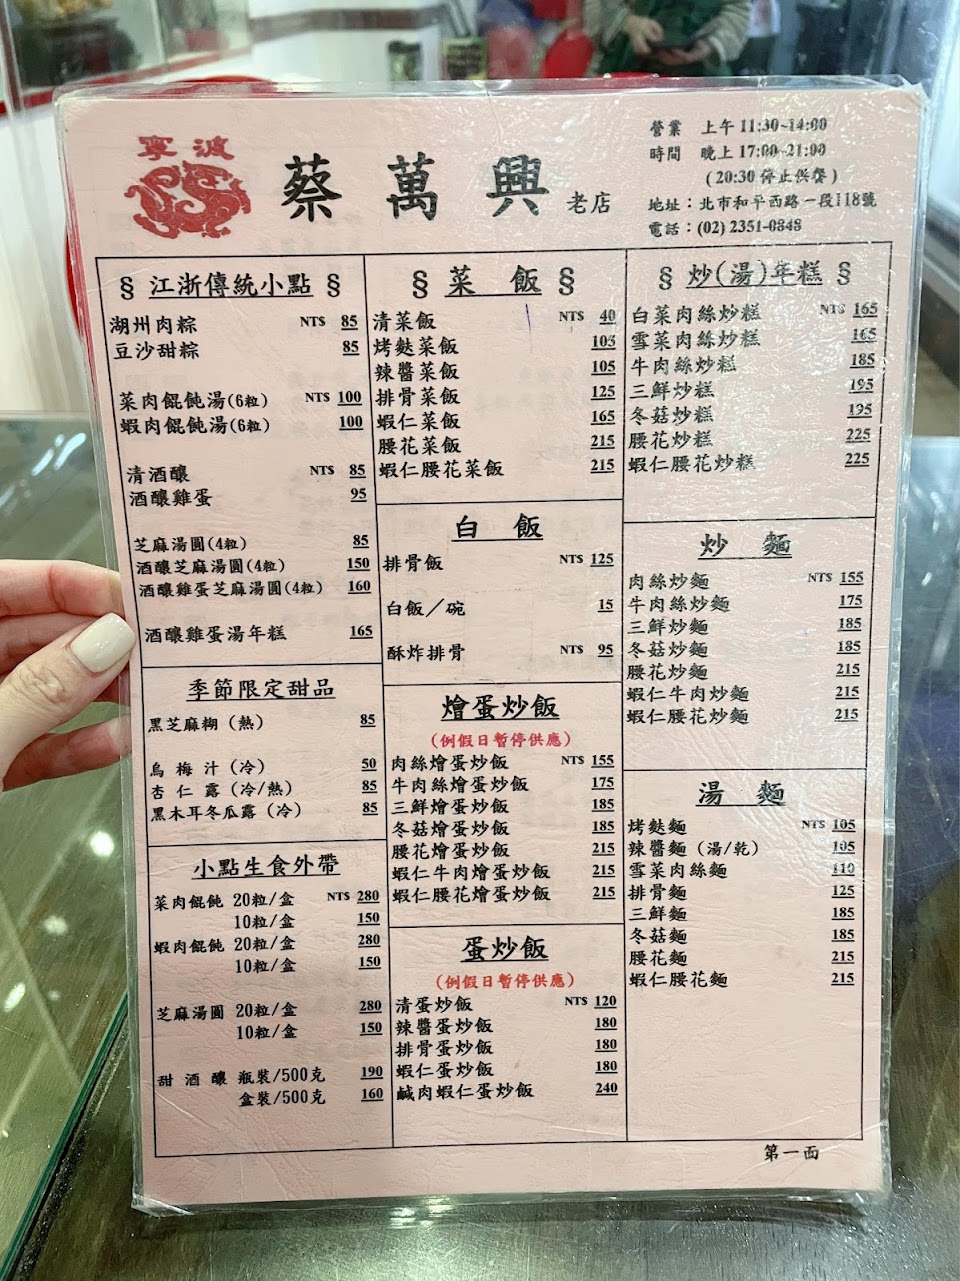 寧波
蔡萬興 老店
營業 上午 11:30~14:00
時間 晚上 17:00~21:00
(20:30 停止供餐)
地址：北市和平西路一段118號
電話：(02) 2351-0848
§ 江浙傳統小點 §
湖州肉粽 NT$ 85
豆沙甜粽 85
菜肉餛飩湯(6粒) NT$ 100
蝦肉餛飩湯(6粒) 100
清酒釀 NT$ 85
酒釀雞蛋 95
芝麻湯圓(4粒) 85
酒釀芝麻湯圓(4粒) 150
酒釀雞蛋芝麻湯圓(4粒) 160
酒釀雞蛋湯年糕 165
季節限定甜品
黑芝麻糊（熱） 85
烏梅汁（冷） 50
杏仁露（冷/熱） 85
黑木耳冬瓜露（冷） 85
小點生食外帶
菜肉餛飩 20粒/盒 NT$ 280
10粒/盒 150
蝦肉餛飩 20粒/盒 280
10粒/盒 150
芝麻湯圓 20粒/盒 280
10粒/盒 150
甜酒釀 瓶裝/500克 190
盒裝/500克 160
§ 菜飯 §
清菜飯 NT$ 40
烤麩菜飯 105
辣醬菜飯 105
排骨菜飯 125
蝦仁菜飯 165
腰花菜飯 215
蝦仁腰花菜飯 215
白飯
排骨飯 NT$ 125
白飯／碗 15
酥炸排骨 NT$ 95
燴蛋炒飯
(例假日暫停供應)
肉絲燴蛋炒飯 NT$ 155
牛肉絲燴蛋炒飯 175
三鮮燴蛋炒飯 185
冬菇燴蛋炒飯 185
腰花燴蛋炒飯 215
蝦仁牛肉燴蛋炒飯 215
蝦仁腰花燴蛋炒飯 215
蛋炒飯
(例假日暫停供應)
清蛋炒飯 NT$ 120
辣醬蛋炒飯 180
排骨蛋炒飯 180
蝦仁蛋炒飯 180
鹹肉蝦仁蛋炒飯 240
§ 炒(湯)年糕 §
白菜肉絲炒糕 NT$ 165
雪菜肉絲炒糕 165
牛肉絲炒糕 185
三鮮炒糕 195
冬菇炒糕 195
腰花炒糕 225
蝦仁腰花炒糕 225
炒麵
肉絲炒麵 NT$ 155
牛肉絲炒麵 175
三鮮炒麵 185
冬菇炒麵 185
腰花炒麵 215
蝦仁牛肉炒麵 215
蝦仁腰花炒麵 215
湯麵
烤麩麵 NT$ 105
辣醬麵（湯/乾） 105
雪菜肉絲麵 110
排骨麵 125
三鮮麵 185
冬菇麵 185
腰花麵 215
蝦仁腰花麵 215
第一面